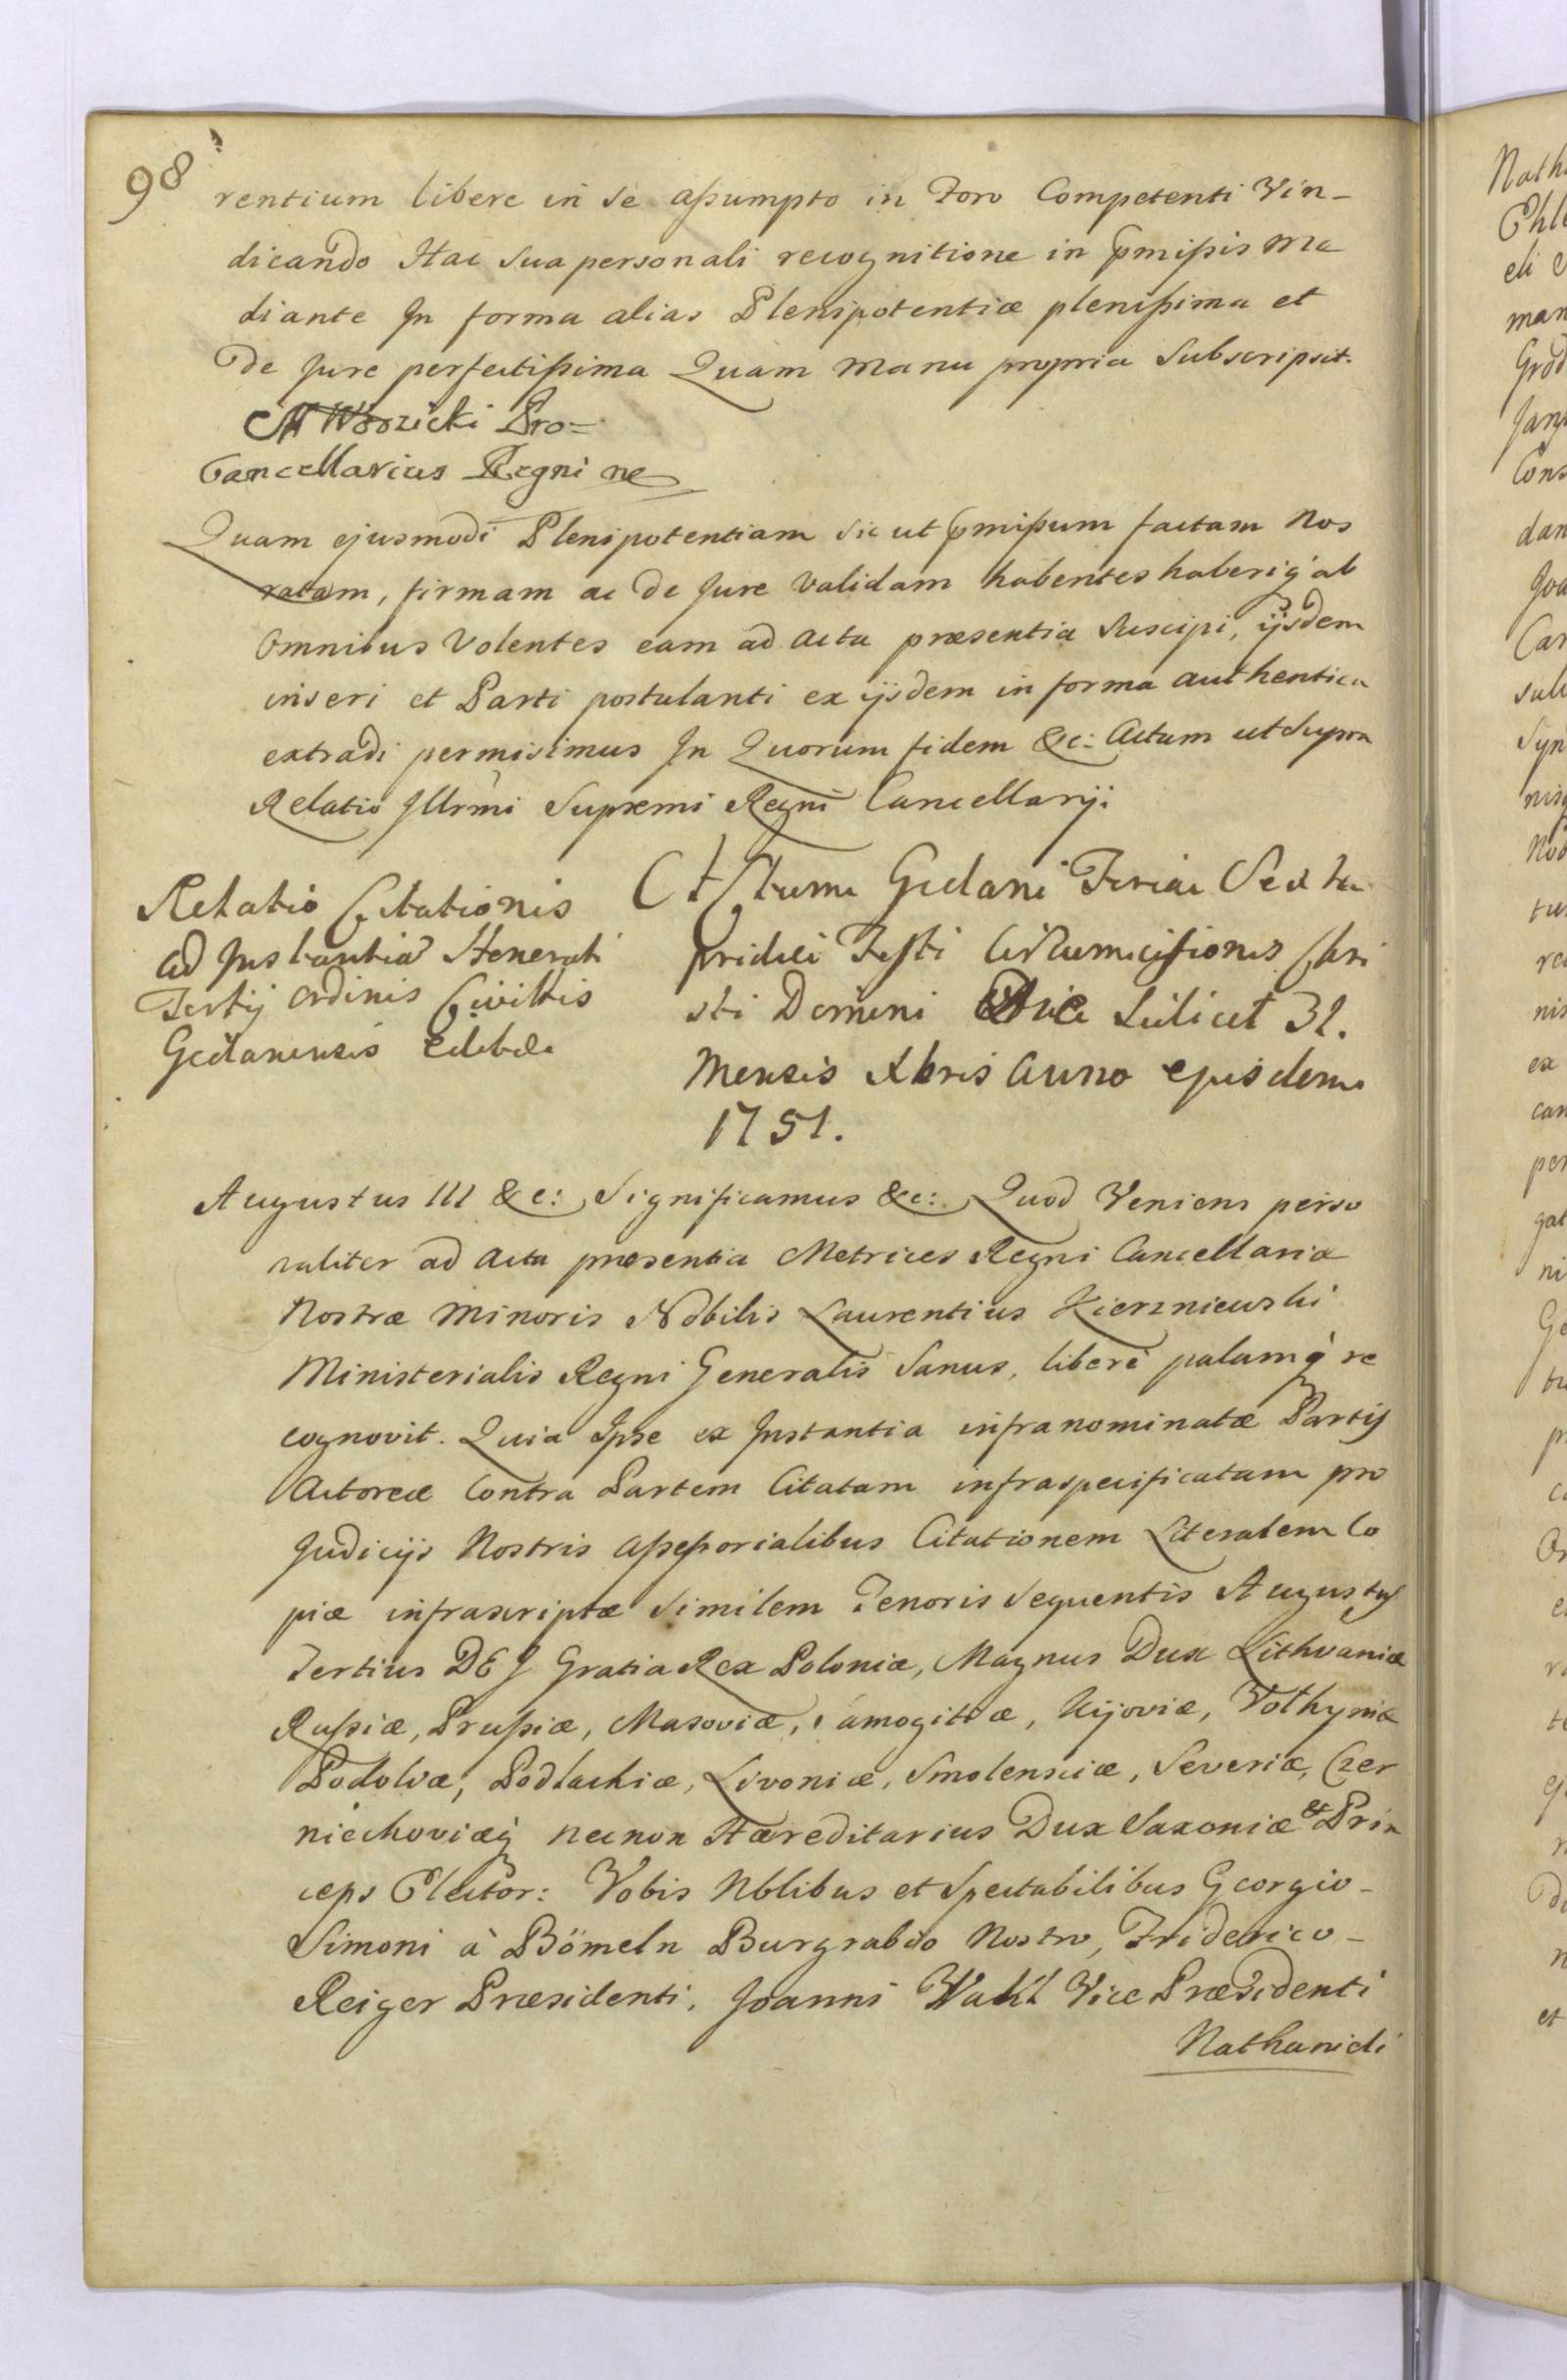 98
rentium libere in se aßumpto in Foro Competenti Vin-
dicando Hac Sua personali recognitione in pmißis Me
diante In forma alias Plenipotentiæ plenißima et
De Jure perfectißima Quam Manu propria Subscripsit.
M Wodzicki Pro=
Cancellarius Regni
Quam ejusmodi Plenipotentiam sic ut pmißum factam Nos
ratam, firmam ac de Jure Validam habentes haberiq ab
Omnibus Volentes eam ad Acta præsentia Suscipi, ijsdem
inseri et Parti postulanti ex ijsdem in forma authentica
extradi permisimus In Quorum fidem &c: Actum ut Supra
Relatio Illrmi Supremi Regni Cancellarij
Relatio Citationis
ad Instantia Honorati
Tertij Ordinis Civitis
Gedanensis
Actum Gedani Feria Sexta
pridie Festi Circumcisionis Chri
sti Domini Die Scilicet 31.
Mensis Xbris Anno ejusdem
1751.
Augustus III &c: Significamus &c: Quod Veniens perso
naliter ad Acta præsentia Metrices Regni Cancellariæ
Nostræ Minoris Nobilis Laurentius Kierzniewski
Ministerialis Regni Generalis Sanus, liberè palamq re
cognovit. Quia Ipse ex Instantia infranominatæ Partis
Actoreæ Contra Partem Citatam infraspecificatam pro
Judicijs Nostris Aßeßorialibus Citationem Literalem Co
piæ infrascriptæ Similem Tenoris Sequentis Augustus
Tertius DEI Gratia Rex Poloniæ, Magnus Dux Lithvaniæ
Rußiæ, Prußiæ, Masoviæ, amogitiæ, Kijoviæ, Volhyniæ
Podoliæ, Podlachiæ, Livoniæ, Smolensciæ, Severiæ, Czer
niechoviæq necnon Hæreditarius Dux Saxoniæ & Prin
ceps Elector: Vobis Nblibus et Spectabilibus Georgio-
Simoni à Bömeln Burgrabio Nostro, Friderico-
Reiger Præsidenti, Joanni Wahl Vice Præsidenti
Nathanieli